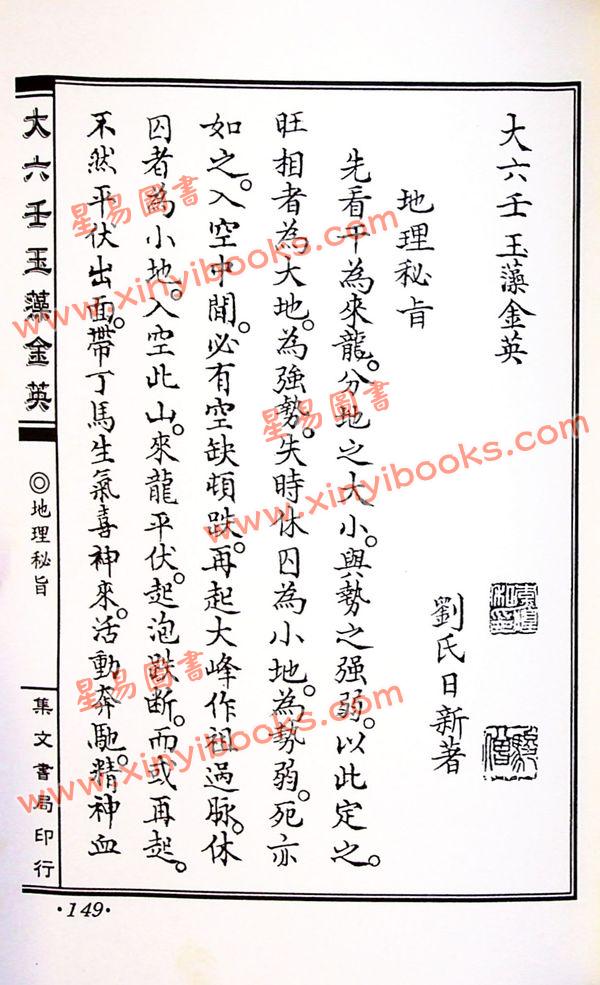 大六壬玉藻金英
劉氏日新著
地理秘旨
先看干為來龍。分地之大小。與勢之强弱。以此定之。
旺相者為大地。為強勢。失時休囚為小地。為勢弱。死亦
如之。入空中間。必有空缺頓跌。再起大峰作祖過脈。休
囚者為小地。入空此山。來龍平伏。起泡跌斷。而或再起。
不然平伏出面。帶丁馬生氣喜神來。活動奔馳。精神血
大六壬玉藻金英
◎地理秘旨
集文書局印行
·149·
星易圖書
www.xinyibooks.com
星易圖書
www.xinyibooks.com
星易圖書
www.xinyibooks.com